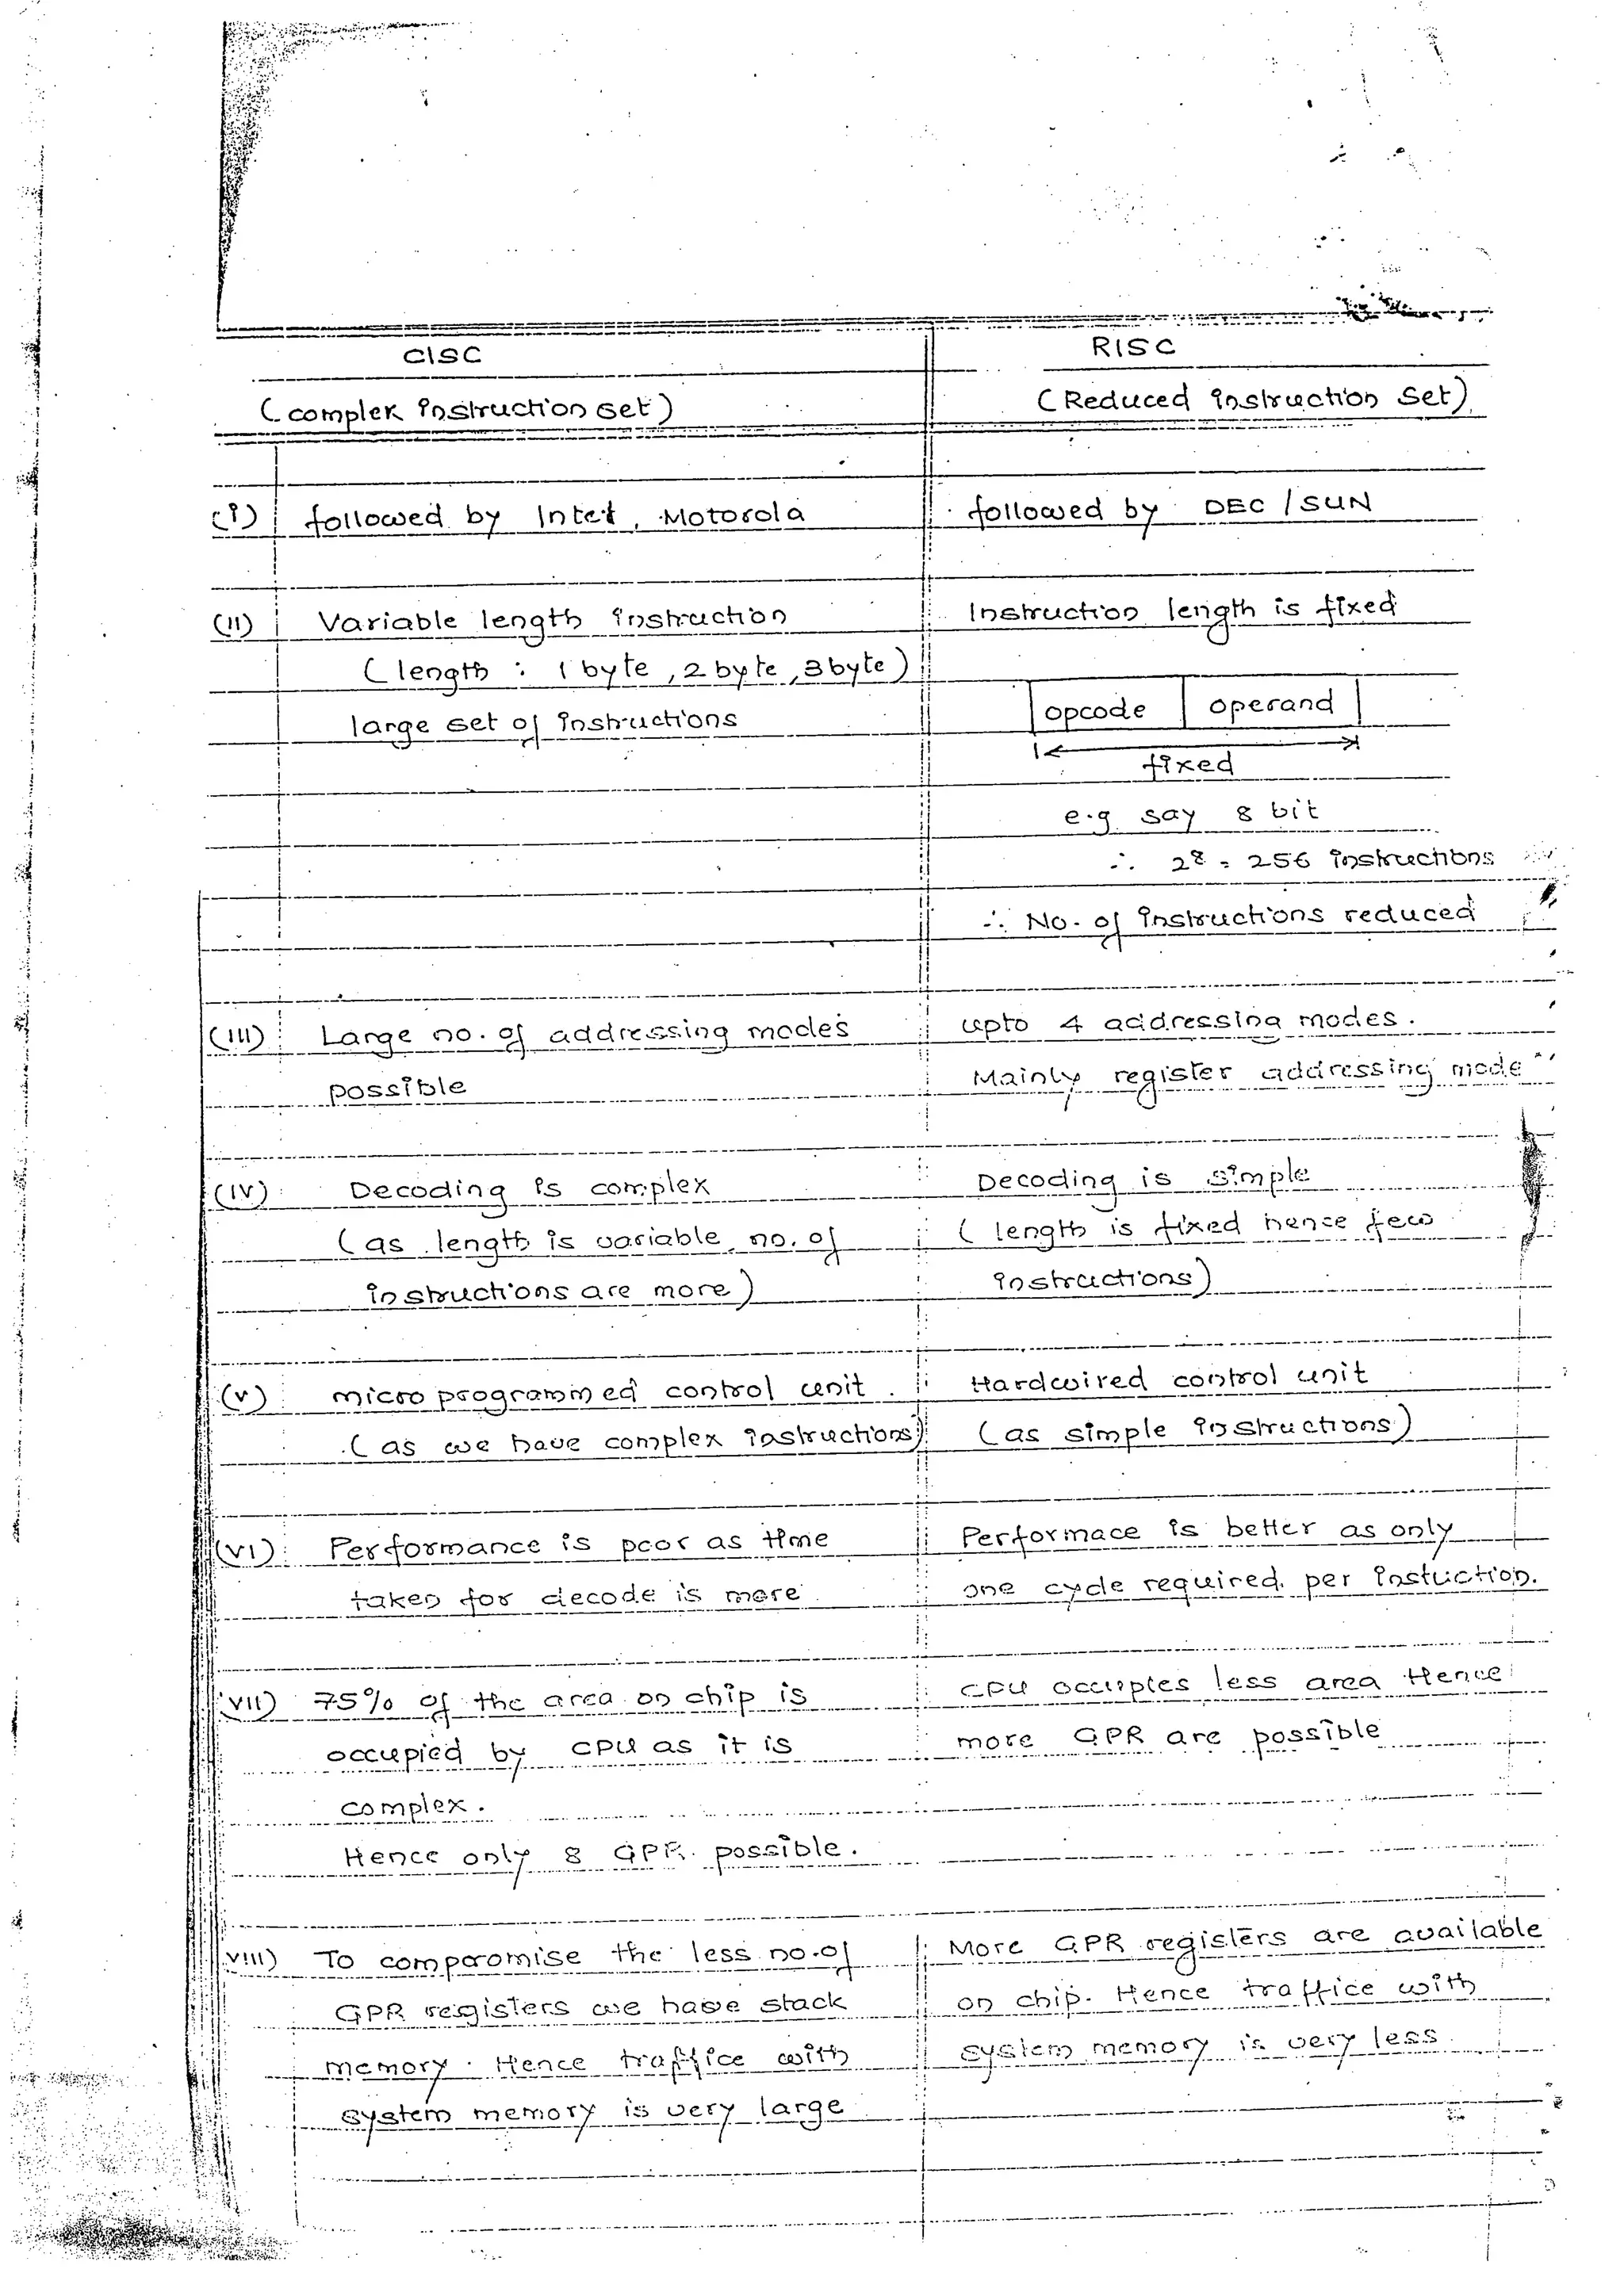 CISC
(complex instruction set)
RISC
(Reduced instruction set)
(i) followed by Intel, Motorola
followed by DEC / SUN
(II) Variable length instruction
(length : 1 byte, 2 byte, 3 byte)
large set of instructions
Instruction length is fixed
opcode operand
fixed
e.g say 8 bit
∴ 2⁸ = 256 instructions
∴ No. of instructions reduced
(III) Large no. of addressing modes
possible
upto 4 addressing modes.
Mainly register addressing mode
(IV) Decoding is complex
(as length is variable, no. of
instructions are more)
Decoding is simple
(length is fixed hence few
instructions)
(V) micro programmed control unit.
(as we have complex instructions)
Hardwired control unit
(as simple instructions)
(VI) Performance is poor as time
taken for decode is more
Performace is better as only
one cycle required per instuction.
(VII) 75% of the area on chip is
occupied by CPU as it is
complex.
Hence only 8 GPR possible.
CPU occupies less area Hence
more GPR are possible
VIII) To comporomise the less no. of
GPR registers we have stack
memory. Hence traffice with
system memory is very large
More GPR registers are available
on chip. Hence traffice with
system memory is very less.